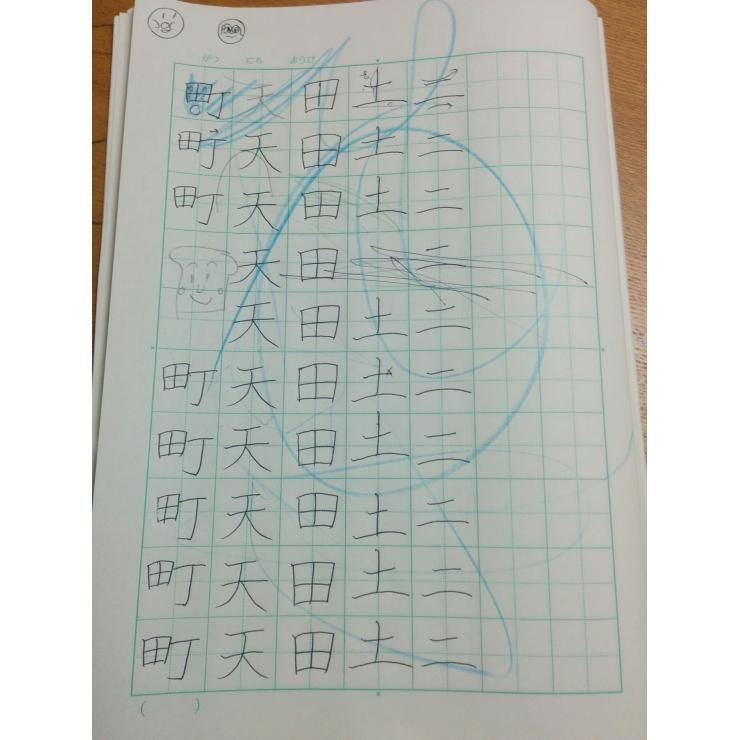 がつ にち ようび
二二二二二二二二二二
土土土土土土土土土
田田田田田田田田田田
天天天天天天天天天天
町町町町町町町町
( )